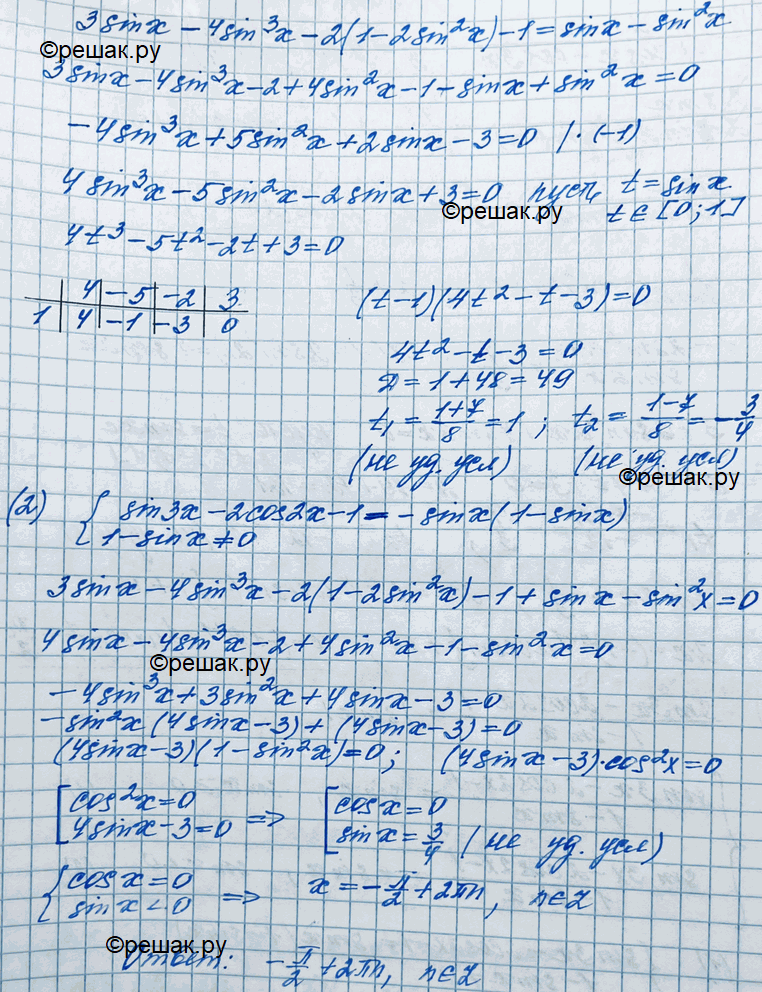 3sinx − 4sin³x − 2(1 − 2sin²x) − 1 = sinx − sin²x
©решак.ру
3sinx − 4sin³x − 2 + 4sin²x − 1 − sinx + sin²x = 0
−4sin³x + 5sin²x + 2sinx − 3 = 0 | · (−1)
4sin³x − 5sin²x − 2sinx + 3 = 0 пусть t = sinx
©решак.ру t ∈ [0; 1]
4t³ − 5t² − 2t + 3 = 0
| 4 | −5 | −2 | 3
1 | 4 | −1 | −3 | 0
(t−1)(4t² − t − 3) = 0
4t² − t − 3 = 0
D = 1 + 48 = 49
t₁ = (1+7)/8 = 1 ; t₂ = (1−7)/8 = −3/4
(не уд. усл) (не уд. усл)
©решак.ру
(2) { sin3x − 2cos2x − 1 = −sinx(1 − sinx)
1 − sinx ≠ 0
3sinx − 4sin³x − 2(1 − 2sin²x) − 1 + sinx − sin²x = 0
4sinx − 4sin³x − 2 + 4sin²x − 1 − sin²x = 0
©решак.ру
−4sin³x + 3sin²x + 4sinx − 3 = 0
−sin²x (4sinx − 3) + (4sinx − 3) = 0
(4sinx − 3)(1 − sin²x) = 0; (4sinx − 3)·cos²x = 0
[ cos²x = 0 => [ cosx = 0
4sinx − 3 = 0 sinx = 3/4 (не уд. усл)
{ cosx = 0 => x = −π/2 + 2πn, n∈Z
sinx < 0
©решак.ру
Ответ: −π/2 + 2πn, n∈Z